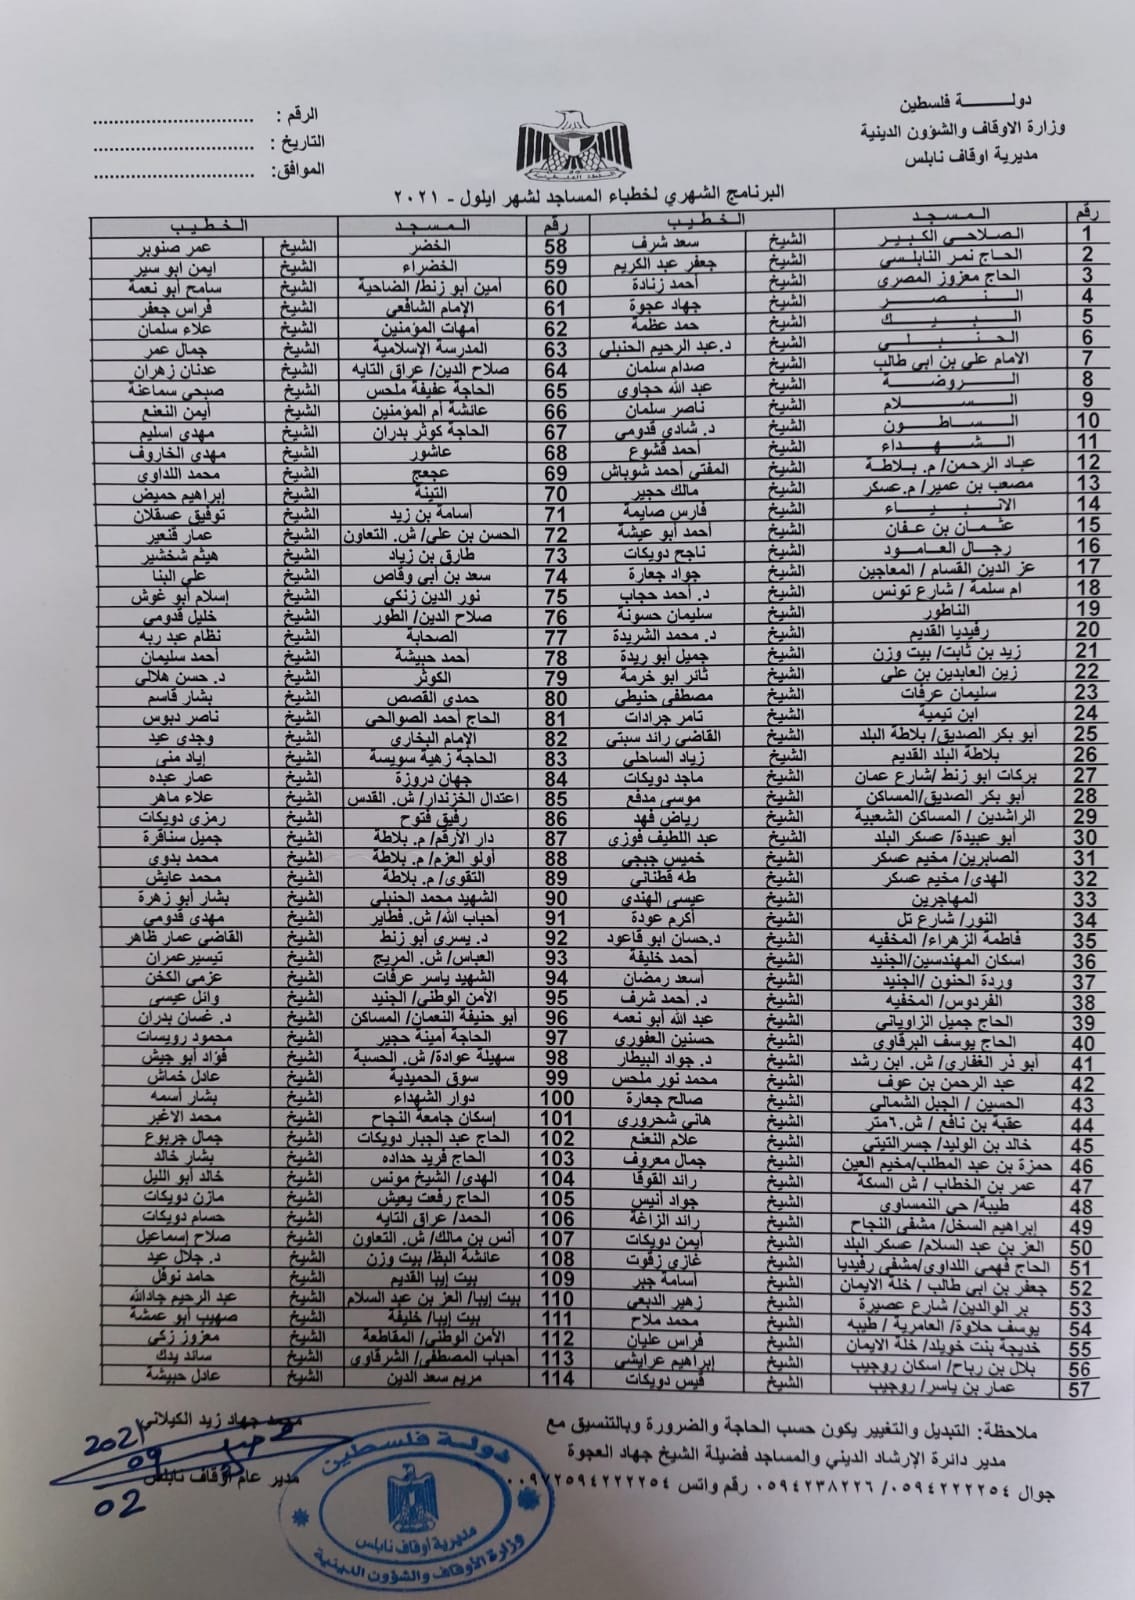 دولـــــة فلسطين
وزارة الاوقاف والشؤون الدينية
مديرية اوقاف نابلس
الرقم : ..............................
التاريخ : ..............................
الموافق: ..............................
البرنامج الشهري لخطباء المساجد لشهر ايلول - ٢٠٢١
رقم المـسـجـد الخـطـيـب رقم المـسـجـد الخـطـيـب
1 الصلاحي الكبير الشيخ سعد شرف 58 الخضر الشيخ عمر صنوبر
2 الحاج نمر النابلسي الشيخ جعفر عبد الكريم 59 الخضراء الشيخ ايمن ابو سير
3 الحاج معزوز المصري الشيخ أحمد زنادة 60 أمين أبو زنط/ الضاحية الشيخ سامح أبو نعمة
4 النصر الشيخ جهاد عجوة 61 الإمام الشافعي الشيخ فراس جعفر
5 البيك الشيخ حمد عظمة 62 أمهات المؤمنين الشيخ علاء سلمان
6 الحنبلي الشيخ د.عبد الرحيم الحنبلي 63 المدرسة الإسلامية الشيخ جمال عمر
7 الامام علي بن ابي طالب الشيخ صدام سلمان 64 صلاح الدين/ عراق التايه الشيخ عدنان زهران
8 الروضة الشيخ عبد الله حجاوي 65 الحاجة عفيفة ملحس الشيخ صبحي سماعنة
9 السلام الشيخ ناصر سلمان 66 عائشة أم المؤمنين الشيخ أيمن النعنع
10 الساطون الشيخ د. شادي قدومي 67 الحاجة كوثر بدران الشيخ مهدي اسليم
11 الشهداء الشيخ أحمد قشوع 68 عاشور الشيخ مهدي الخاروف
12 عباد الرحمن/ م. بلاطة الشيخ المفتي أحمد شوباش 69 عجعج الشيخ محمد اللداوي
13 مصعب بن عمير/ م.عسكر الشيخ مالك حجير 70 التينة الشيخ إبراهيم حميض
14 الانبياء الشيخ فارس صايمة 71 أسامة بن زيد الشيخ توفيق عسقلان
15 عثمان بن عفان الشيخ أحمد أبو عيشة 72 الحسن بن علي/ ش. التعاون الشيخ عمار قنعير
16 رجال العامود الشيخ ناجح دويكات 73 طارق بن زياد الشيخ هيثم شخشير
17 عز الدين القسام / المعاجين الشيخ جواد جعارة 74 سعد بن أبي وقاص الشيخ علي البنا
18 ام سلمة / شارع تونس الشيخ د. أحمد حجاب 75 نور الدين زنكي الشيخ إسلام أبو غوش
19 الناطور الشيخ سليمان حسونة 76 صلاح الدين/ الطور الشيخ خليل قدومي
20 رفيديا القديم الشيخ د. محمد الشريدة 77 الصحابة الشيخ نظام عبد ربه
21 زيد بن ثابت/ بيت وزن الشيخ جميل أبو ريدة 78 أحمد حبيشة الشيخ أحمد سليمان
22 زين العابدين بن علي الشيخ ثائر ابو خرمة 79 الكوثر الشيخ د. حسن هلالي
23 سليمان عرفات الشيخ مصطفى حنيطي 80 حمدي القصص الشيخ بشار قاسم
24 ابن تيمية الشيخ تامر جرادات 81 الحاج أحمد الصوالحي الشيخ ناصر دبوس
25 أبو بكر الصديق/ بلاطة البلد الشيخ القاضي رائد سبتي 82 الإمام البخاري الشيخ وجدي عيد
26 بلاطة البلد القديم الشيخ زياد الساحلي 83 الحاجة زهية سويسة الشيخ إياد منى
27 بركات ابو زنط /شارع عمان الشيخ ماجد دويكات 84 جهان دروزة الشيخ عمار عبده
28 أبو بكر الصديق/المساكن الشيخ موسى مدفع 85 اعتدال الخزندار/ ش. القدس الشيخ علاء ماهر
29 الراشدين / المساكن الشعبية الشيخ رياض فهد 86 رفيق فتوح الشيخ رمزي دويكات
30 أبو عبيدة/ عسكر البلد الشيخ عبد اللطيف فوزي 87 دار الأرقم/ م. بلاطة الشيخ جميل سناقرة
31 الصابرين/ مخيم عسكر الشيخ خميس جبجي 88 أولو العزم/ م. بلاطة الشيخ محمد بدوي
32 الهدى/ مخيم عسكر الشيخ طه قطناني 89 التقوى/ م. بلاطة الشيخ محمد عايش
33 المهاجرين الشيخ عيسى الهندي 90 الشهيد محمد الحنبلي الشيخ بشار أبو زهرة
34 النور/ شارع تل الشيخ أكرم عودة 91 أحباب الله/ ش. فطاير الشيخ مهدي قدومي
35 فاطمة الزهراء/ المخفيه الشيخ د.حسان ابو قاعود 92 د. يسري أبو زنط الشيخ القاضي عمار ظاهر
36 اسكان المهندسين/الجنيد الشيخ أحمد خليفة 93 العباس/ ش. المريج الشيخ تيسيرعمران
37 وردة الحنون /الجنيد الشيخ أسعد رمضان 94 الشهيد ياسر عرفات الشيخ عزمي الكخن
38 الفردوس/ المخفيه الشيخ د. أحمد شرف 95 الأمن الوطني/ الجنيد الشيخ وائل عيسى
39 الحاج جميل الزاوياني الشيخ عبد الله أبو نعمه 96 أبو حنيفة النعمان/ المساكن الشيخ د. غسان بدران
40 الحاج يوسف البرقاوي الشيخ حسنين العفوري 97 الحاجة أمينة حجير الشيخ محمود رويسات
41 أبو ذر الغفاري/ ش. ابن رشد الشيخ د. جواد البيطار 98 سهيلة عوادة/ ش. الحسبة الشيخ فؤاد أبو جيش
42 عبد الرحمن بن عوف الشيخ محمد نور ملحس 99 سوق الحميدية الشيخ عادل خماش
43 الحسين / الجبل الشمالي الشيخ صالح جعارة 100 دوار الشهداء الشيخ بشار أسمه
44 عقبة بن نافع / ش.٦متر الشيخ هاني شحروري 101 إسكان جامعة النجاح الشيخ محمد الاغبر
45 خالد بن الوليد/ جسرالتيتي الشيخ علام النعنع 102 الحاج عبد الجبار دويكات الشيخ جمال جربوع
46 حمزة بن عبد المطلب/مخيم العين الشيخ جمال معروف 103 الحاج فريد حداده الشيخ بشار خالد
47 عمر بن الخطاب / ش السكة الشيخ رائد القوقا 104 الهدى/ الشيخ مونس الشيخ خالد أبو الليل
48 طيبة/ حي النمساوي الشيخ جواد أنيس 105 الحاج رفعت يعيش الشيخ مازن دويكات
49 إبراهيم السخل/ مشفى النجاح الشيخ رائد الزاغة 106 الحمد/ عراق التايه الشيخ حسام دويكات
50 العز بن عبد السلام/ عسكر البلد الشيخ أيمن دويكات 107 أنس بن مالك/ ش. التعاون الشيخ صلاح إسماعيل
51 الحاج فهمي اللداوي/مشفى رفيديا الشيخ غازي زقوت 108 عائشة البظ/ بيت وزن الشيخ د. جلال عيد
52 جعفر بن ابي طالب / خلة الايمان الشيخ أسامة جبر 109 بيت إيبا القديم الشيخ حامد نوفل
53 بر الوالدين/ شارع عصيرة الشيخ زهير الدبعي 110 بيت إيبا/ العز بن عبد السلام الشيخ عبد الرحيم جادالله
54 يوسف حلاوة/ العامرية / طيبه الشيخ محمد ملاح 111 بيت إيبا/ خليفة الشيخ صهيب أبو عمشة
55 خديجة بنت خويلد/ خلة الايمان الشيخ فراس عليان 112 الأمن الوطني/ المقاطعة الشيخ معزوز زكي
56 بلال بن رباح/ اسكان روجيب الشيخ إبراهيم عرايشي 113 أحباب المصطفى/ الشرقاوي الشيخ سائد يدك
57 عمار بن ياسر/ روجيب الشيخ قيس دويكات 114 مريم سعد الدين الشيخ عادل حبيشة
ملاحظة: التبديل والتغيير يكون حسب الحاجة والضرورة وبالتنسيق مع
مدير دائرة الإرشاد الديني والمساجد فضيلة الشيخ جهاد العجوة
جوال ٠٥٩٤٢٢٢٢٥٤/ ٠٥٩٤٢٣٨٢٢٦ رقم واتس ٠٠٩٧٢٥٩٤٢٢٢٢٥٤
محمد جهاد زيد الكيلاني
مدير عام أوقاف نابلس
2021
09
02
دولة فلسطين
مديرية أوقاف نابلس
وزارة الأوقاف والشؤون الدينية